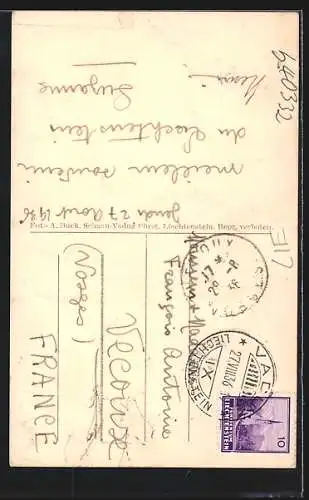 Jeudi 27 Aout 1936
meilleur souvenir
du Liechtenstein
Suzanne
Merci
Fot. A. Buck, Schaan-Vaduz Fürst. Liechtenstein. Repr. verboten.
Monsieur + Madame
François Antoine
Vecoux
(Vosges)
FRANCE
VADUZ
27.VIII.36
LIECHTENSTEIN
10
LIECHTENSTEIN
540332